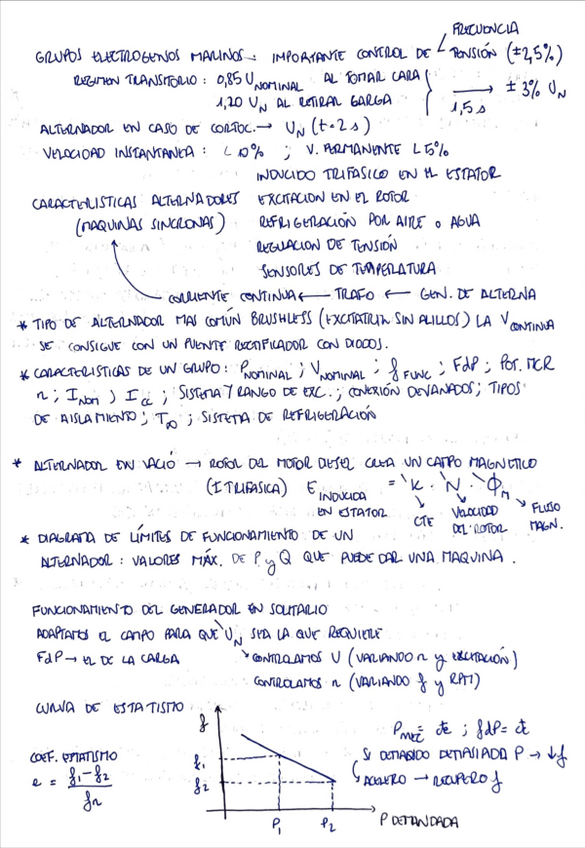 FRECUENCIA
GRUPOS ELECTROGENOS MARINOS: IMPORTANTE CONTROL DE TENSIÓN (±2,5%)
REGIMEN TRANSITORIO: 0,85 U NOMINAL AL TOMAR CARA
1,20 U_N AL RETIRAR GARGA → 1,5 s ± 3% U_N
ALTERNADOR EN CASO DE CORTOC. → U_N (t=2 s)
VELOCIDAD INSTANTANEA: < 10% ; V. PERMANENTE < 5%
INDUCIDO TRIFASICO EN EL ESTATOR
CARACTERISTICAS ALTERNADORES EXCITACION EN EL ROTOR
(MAQUINAS SINCRONAS) REFRIGERACIÓN POR AIRE o AGUA
REGUACION DE TENSIÓN
SENSORES DE TEMPERATURA
CORRIENTE CONTINUA ← TRAFO ← GEN. DE ALTERNA
* TIPO DE ALTERNADOR MAS COMÚN BRUSHLESS (EXCITATRIZ SIN ALILLOS) LA V CONTINUA
SE CONSIGUE CON UN PUENTE RECTIFICADOR CON DIODOS.
* CARACTERISTICAS DE UN GRUPO: P NOMINAL ; V NOMINAL ; f FUNC ; FdP ; POT. MCR
n ; I NOM ; I CC ; SISTEMA Y RANGO DE EXC. ; CONEXIÓN DEVANADOS ; TIPOS
DE AISLAMIENTO ; T∞ ; SISTEMA DE REFRIGERACIÓN
* ALTERNADOR EN VACIÓ → ROTOR DEL MOTOR DIESEL CREA UN CAMPO MAGNETICO
(I TRIFASICA) E INDUCIDA EN ESTATOR = K · N · Φ_M
CTE VELOCIDAD DEL ROTOR FLUSO MAGN.
* DIAGRAMA DE LÍMITES DE FUNCIONAMIENTO DE UN
ALTERNADOR: VALORES MÁX. DE P y Q QUE PUEDE DAR UNA MAQUINA.
FUNCIONAMIENTO DEL GENERADOR EN SOLITARIO
ADAPTAMOS EL CAMPO PARA QUE U_N SEA LA QUE REQUIERE
FdP → EL DE LA CARGA CONTROLAMOS U (VARIANDO n y EXCITACIÓN)
CONTROLAMOS n (VARIANDO f y RPM)
CURVA DE ESTATISMO
f
P MEC = cte ; fdP = cte
COEF. ESTATISMO
SI DEMASIADA P → ↓f
ACELERO → RECUPERO f
e = (f1 - f2) / fn
f1
f2
P1 P2 P DEMANDADA